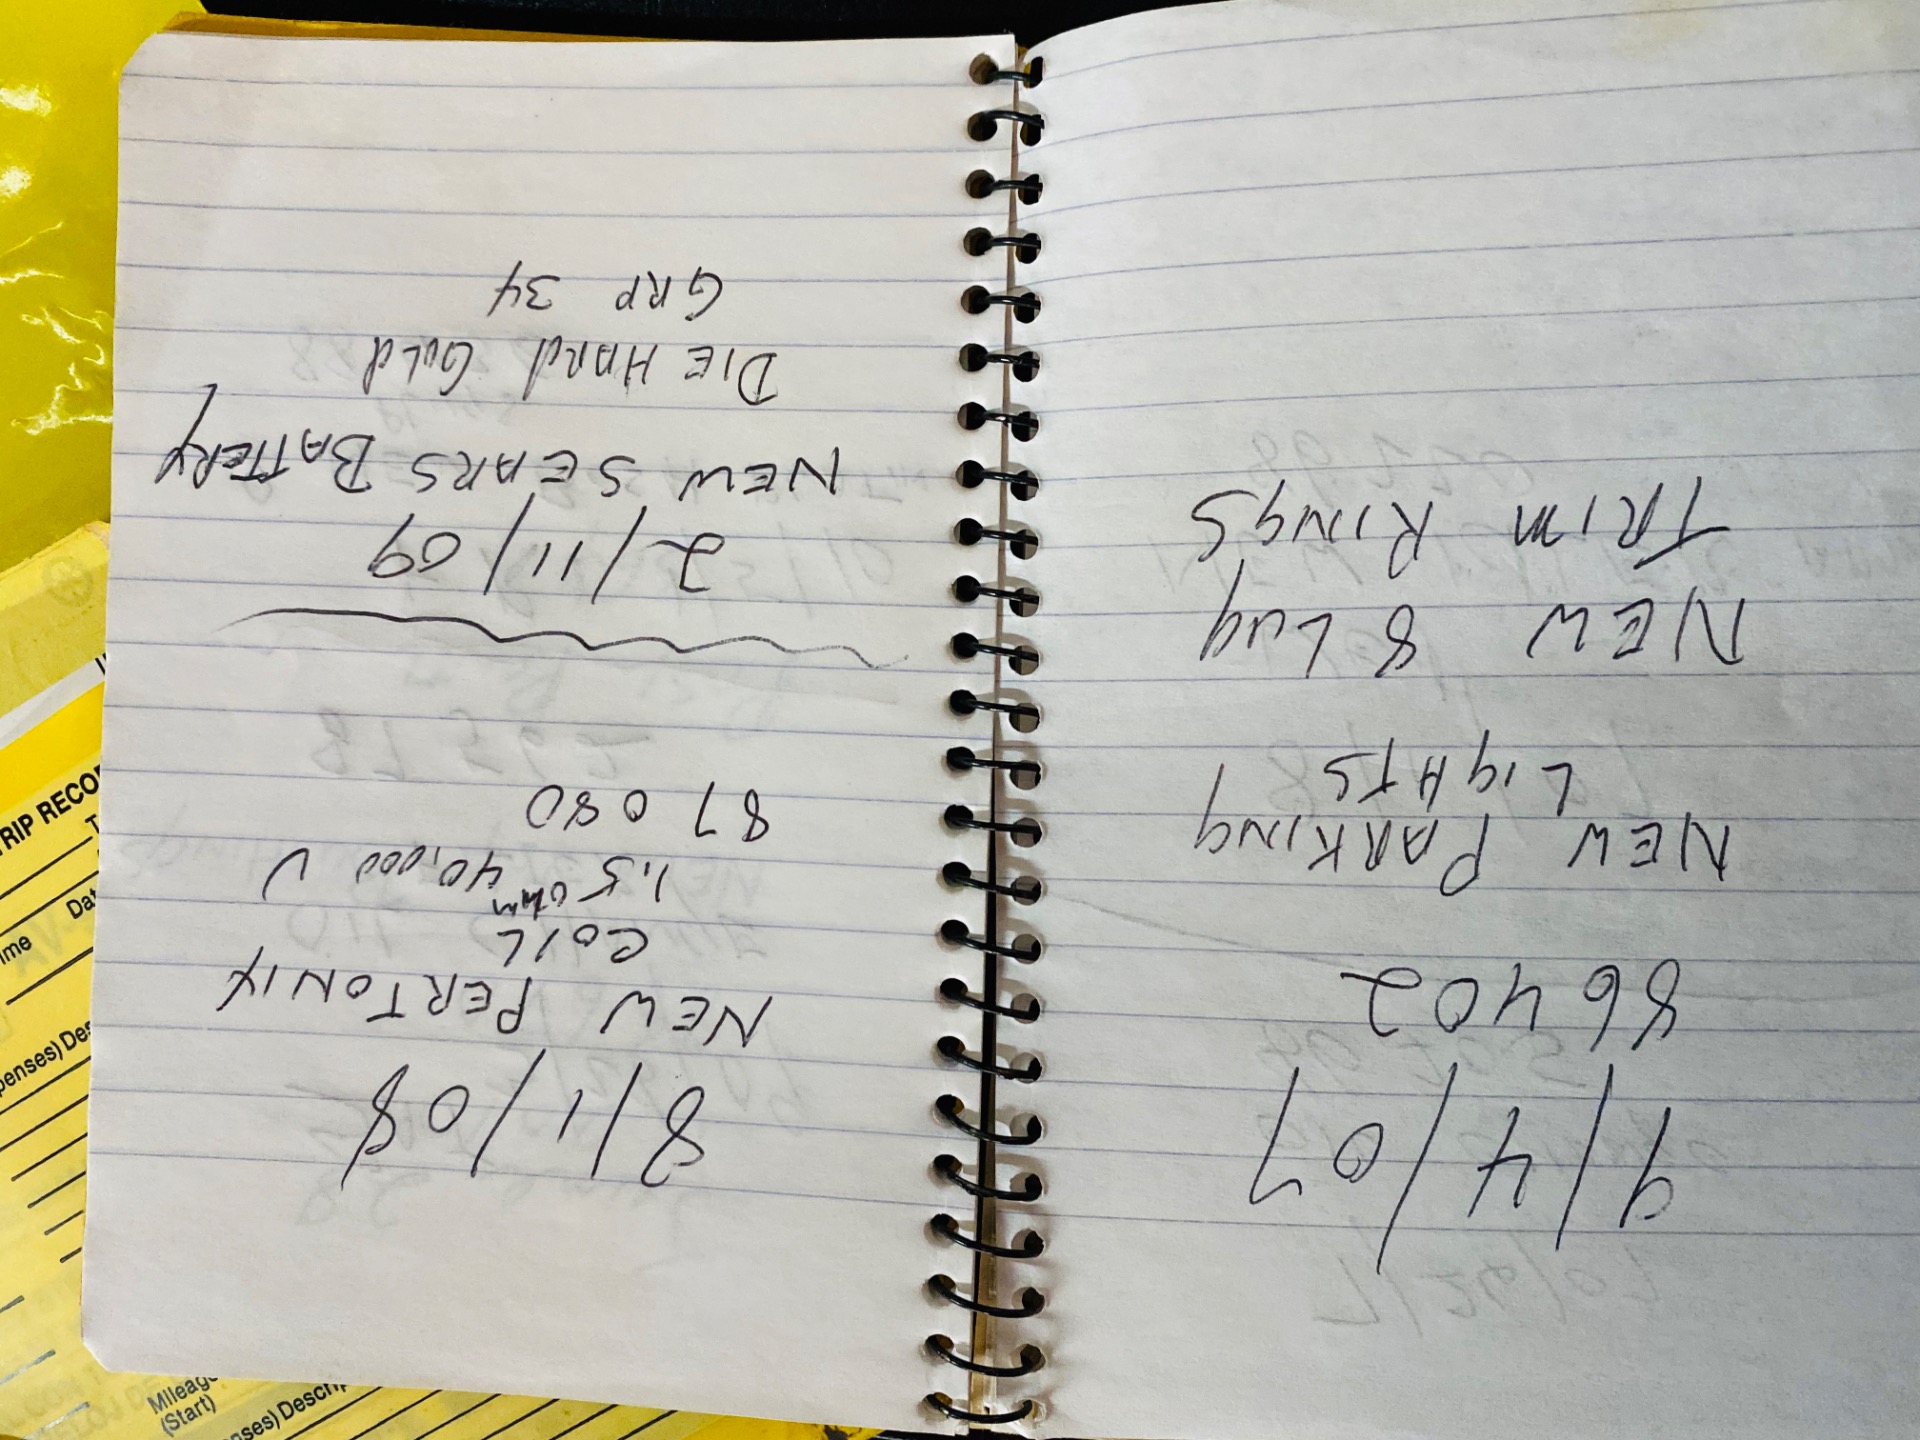 9/4/07
86402
NEW PARKING
LIGHTS
NEW 8 LUG
TRIM RINGS
8/1/08
NEW PERTONIX
COIL
1.5 ohm 40,000 V
87080
2/11/09
NEW SEARS BATTERY
DIE HARD GOLD
GRP 34
TRIP RECO
Dat
ime
penses) Des
Mileage
(Start)
nses) Descrip